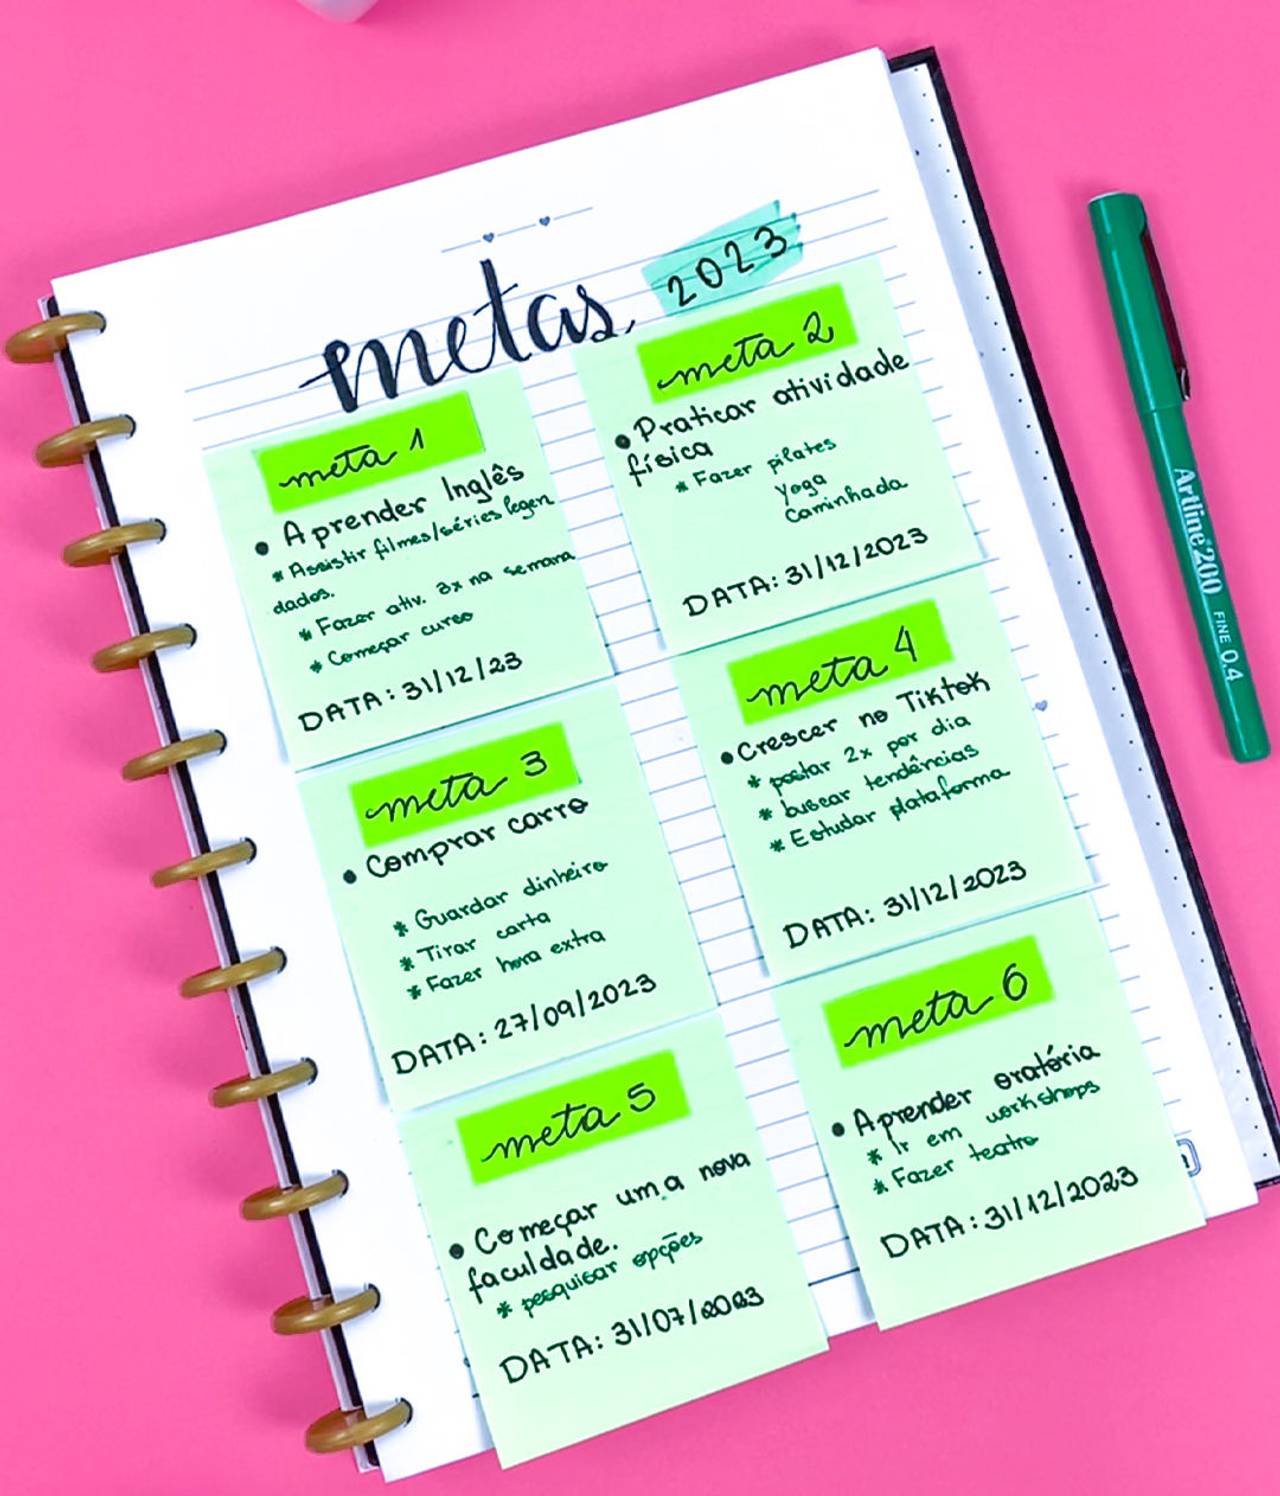 metas 2023
meta 1
• Aprender Inglês
* Assistir filmes/séries legen
dados.
* Fazer ativ. 3x na semana
* Começar curso
DATA: 31/12/23
meta 2
• Praticar atividade
física
* Fazer pilates
yoga
Caminhada
DATA: 31/12/2023
meta 3
• Comprar carro
* Guardar dinheiro
* Tirar carta
* Fazer hora extra
DATA: 27/09/2023
meta 4
• Crescer no Tiktok
* postar 2x por dia
* buscar tendências
* Estudar plataforma
DATA: 31/12/2023
meta 5
• Começar uma nova
faculdade.
* pesquisar opções
DATA: 31/07/2023
meta 6
• Aprender oratória
* Ir em workshops
* Fazer teatro
DATA: 31/12/2023
Artline 200 FINE 0.4